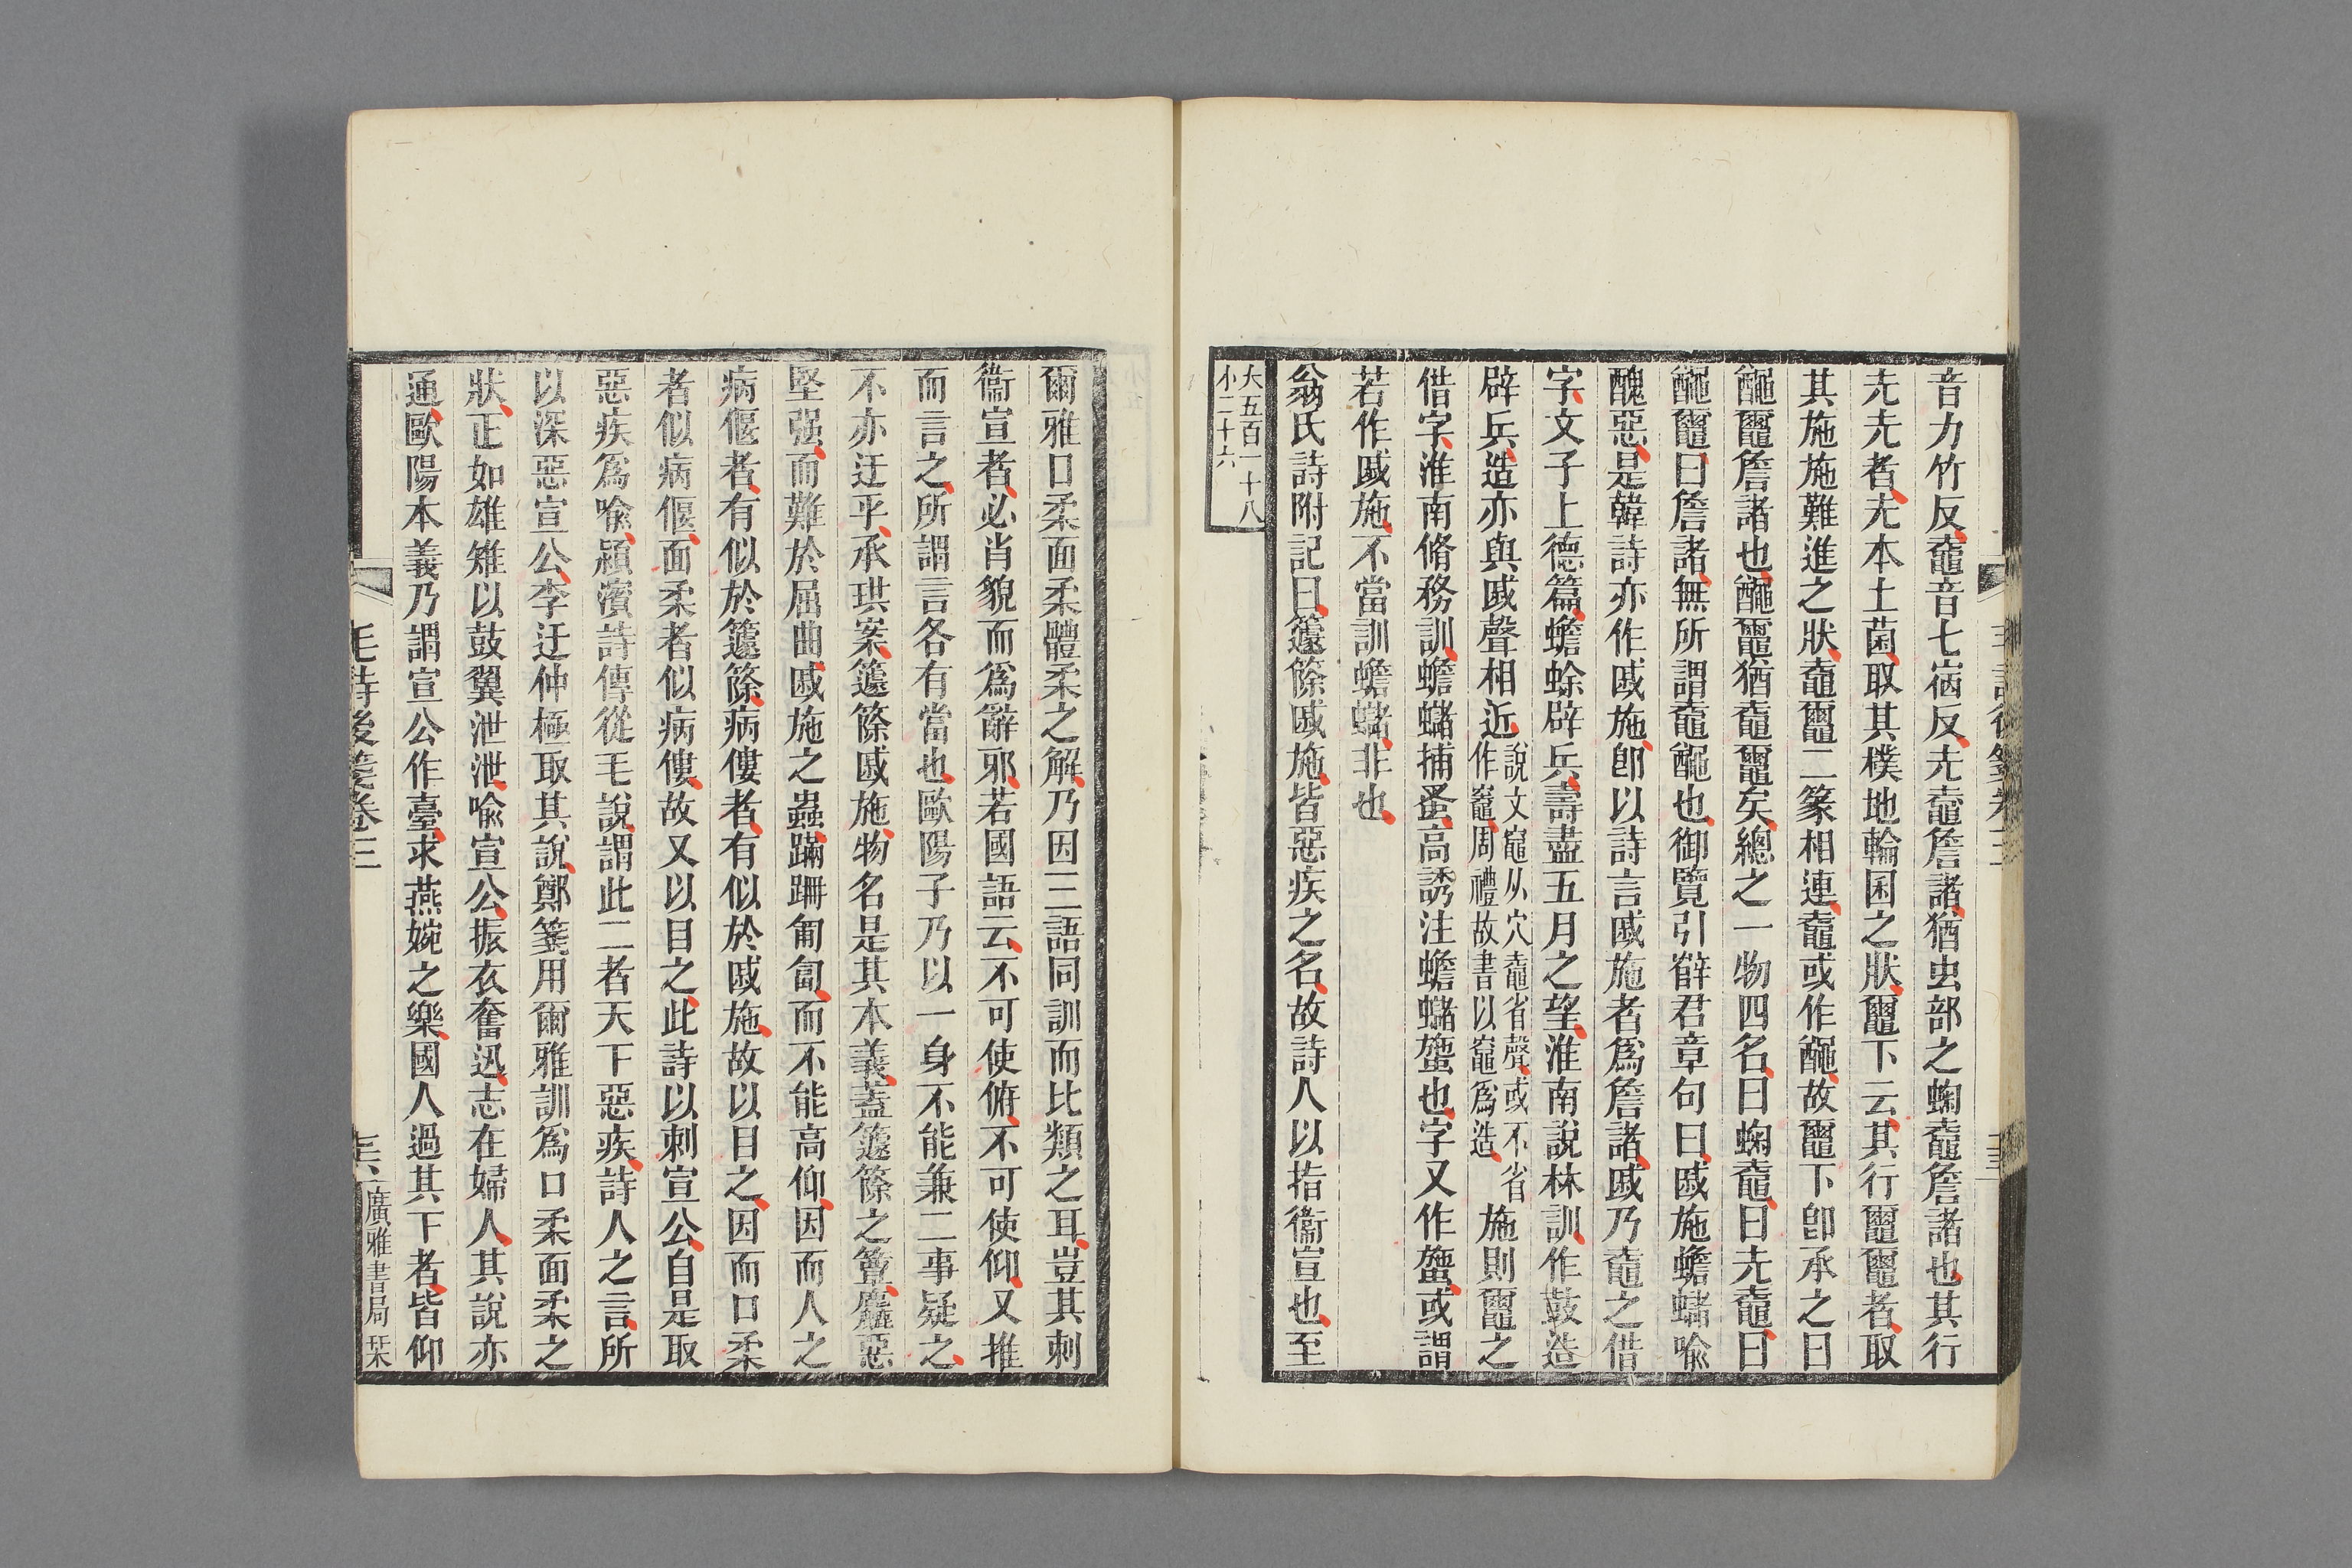 音力竹反𪓰音七宿反圥𪓰詹諸猶虫部之蜪𪓰詹諸也其行
圥圥者圥本土菌取其樸地輪囷之狀𪓿下云其行𪓿𪓿者取
其施施難進之狀𪓰𪓿二篆相連𪓰或作𪓬故𪓿下卽承之曰
𪓬𪓿詹諸也𪓬𪓿猶𪓰𪓿矣總之一物四名曰蜪𪓰曰圥𪓰曰
𪓬𪓿曰詹諸無所謂𪓰𪓬也御覽引薛君章句曰戚施蟾蠩喩
醜惡是韓詩亦作戚施卽以詩言戚施者爲詹諸戚乃𪓰之借
字文子上德篇蟾蜍辟兵壽盡五月之望淮南說林訓作鼓造
辟兵造亦與戚聲相近說文竈从穴𪓰省聲或不省
作竈周禮故書以竈爲造施則𪓿之
借字淮南脩務訓蟾蠩捕蚤高誘注蟾蠩䗐也字又作䗐或謂
若作戚施不當訓蟾蠩非也
翁氏詩附記曰籧篨戚施皆惡疾之名故詩人以指衞宣也至
大五百一十八
小二十六
爾雅口柔面柔體柔之解乃因三語同訓而比類之耳豈其刺
衞宣者必肖貌而爲辭邪若國語云不可使俯不可使仰又推
而言之所謂言各有當也歐陽子乃以一身不能兼二事疑之
不亦迂乎承珙案籧篨戚施物名是其本義蓋籧篨之簟麤惡
堅强而難於屈曲戚施之蟲蹣跚匍匐而不能高仰因而人之
病偃者有似於籧篨病僂者有似於戚施故以目之因而口柔
者似病偃面柔者似病僂故又以目之此詩以刺宣公自是取
惡疾爲喩潁濱詩傳從毛說謂此二者天下惡疾詩人之言所
以深惡宣公李迂仲極取其說鄭箋用爾雅訓爲口柔面柔之
狀正如雄雉以鼓翼泄泄喩宣公振衣奮迅志在婦人其說亦
通歐陽本義乃謂宣公作臺求燕婉之樂國人過其下者皆仰
毛詩後箋卷三
廣雅書局栞